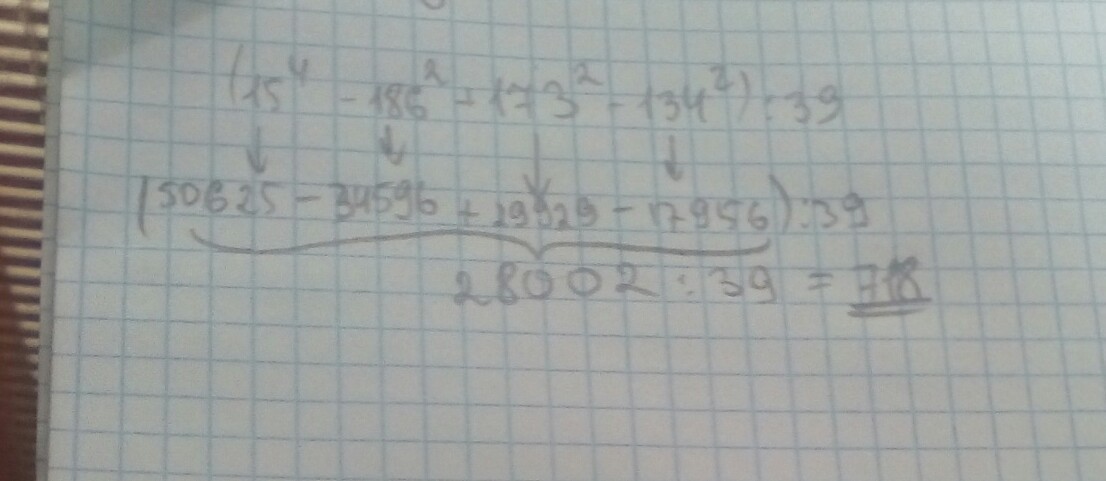 (15⁴ - 186² + 173² - 134²) : 39
(50625 - 34596 + 29929 - 17956) : 39
28002 : 39 = 718